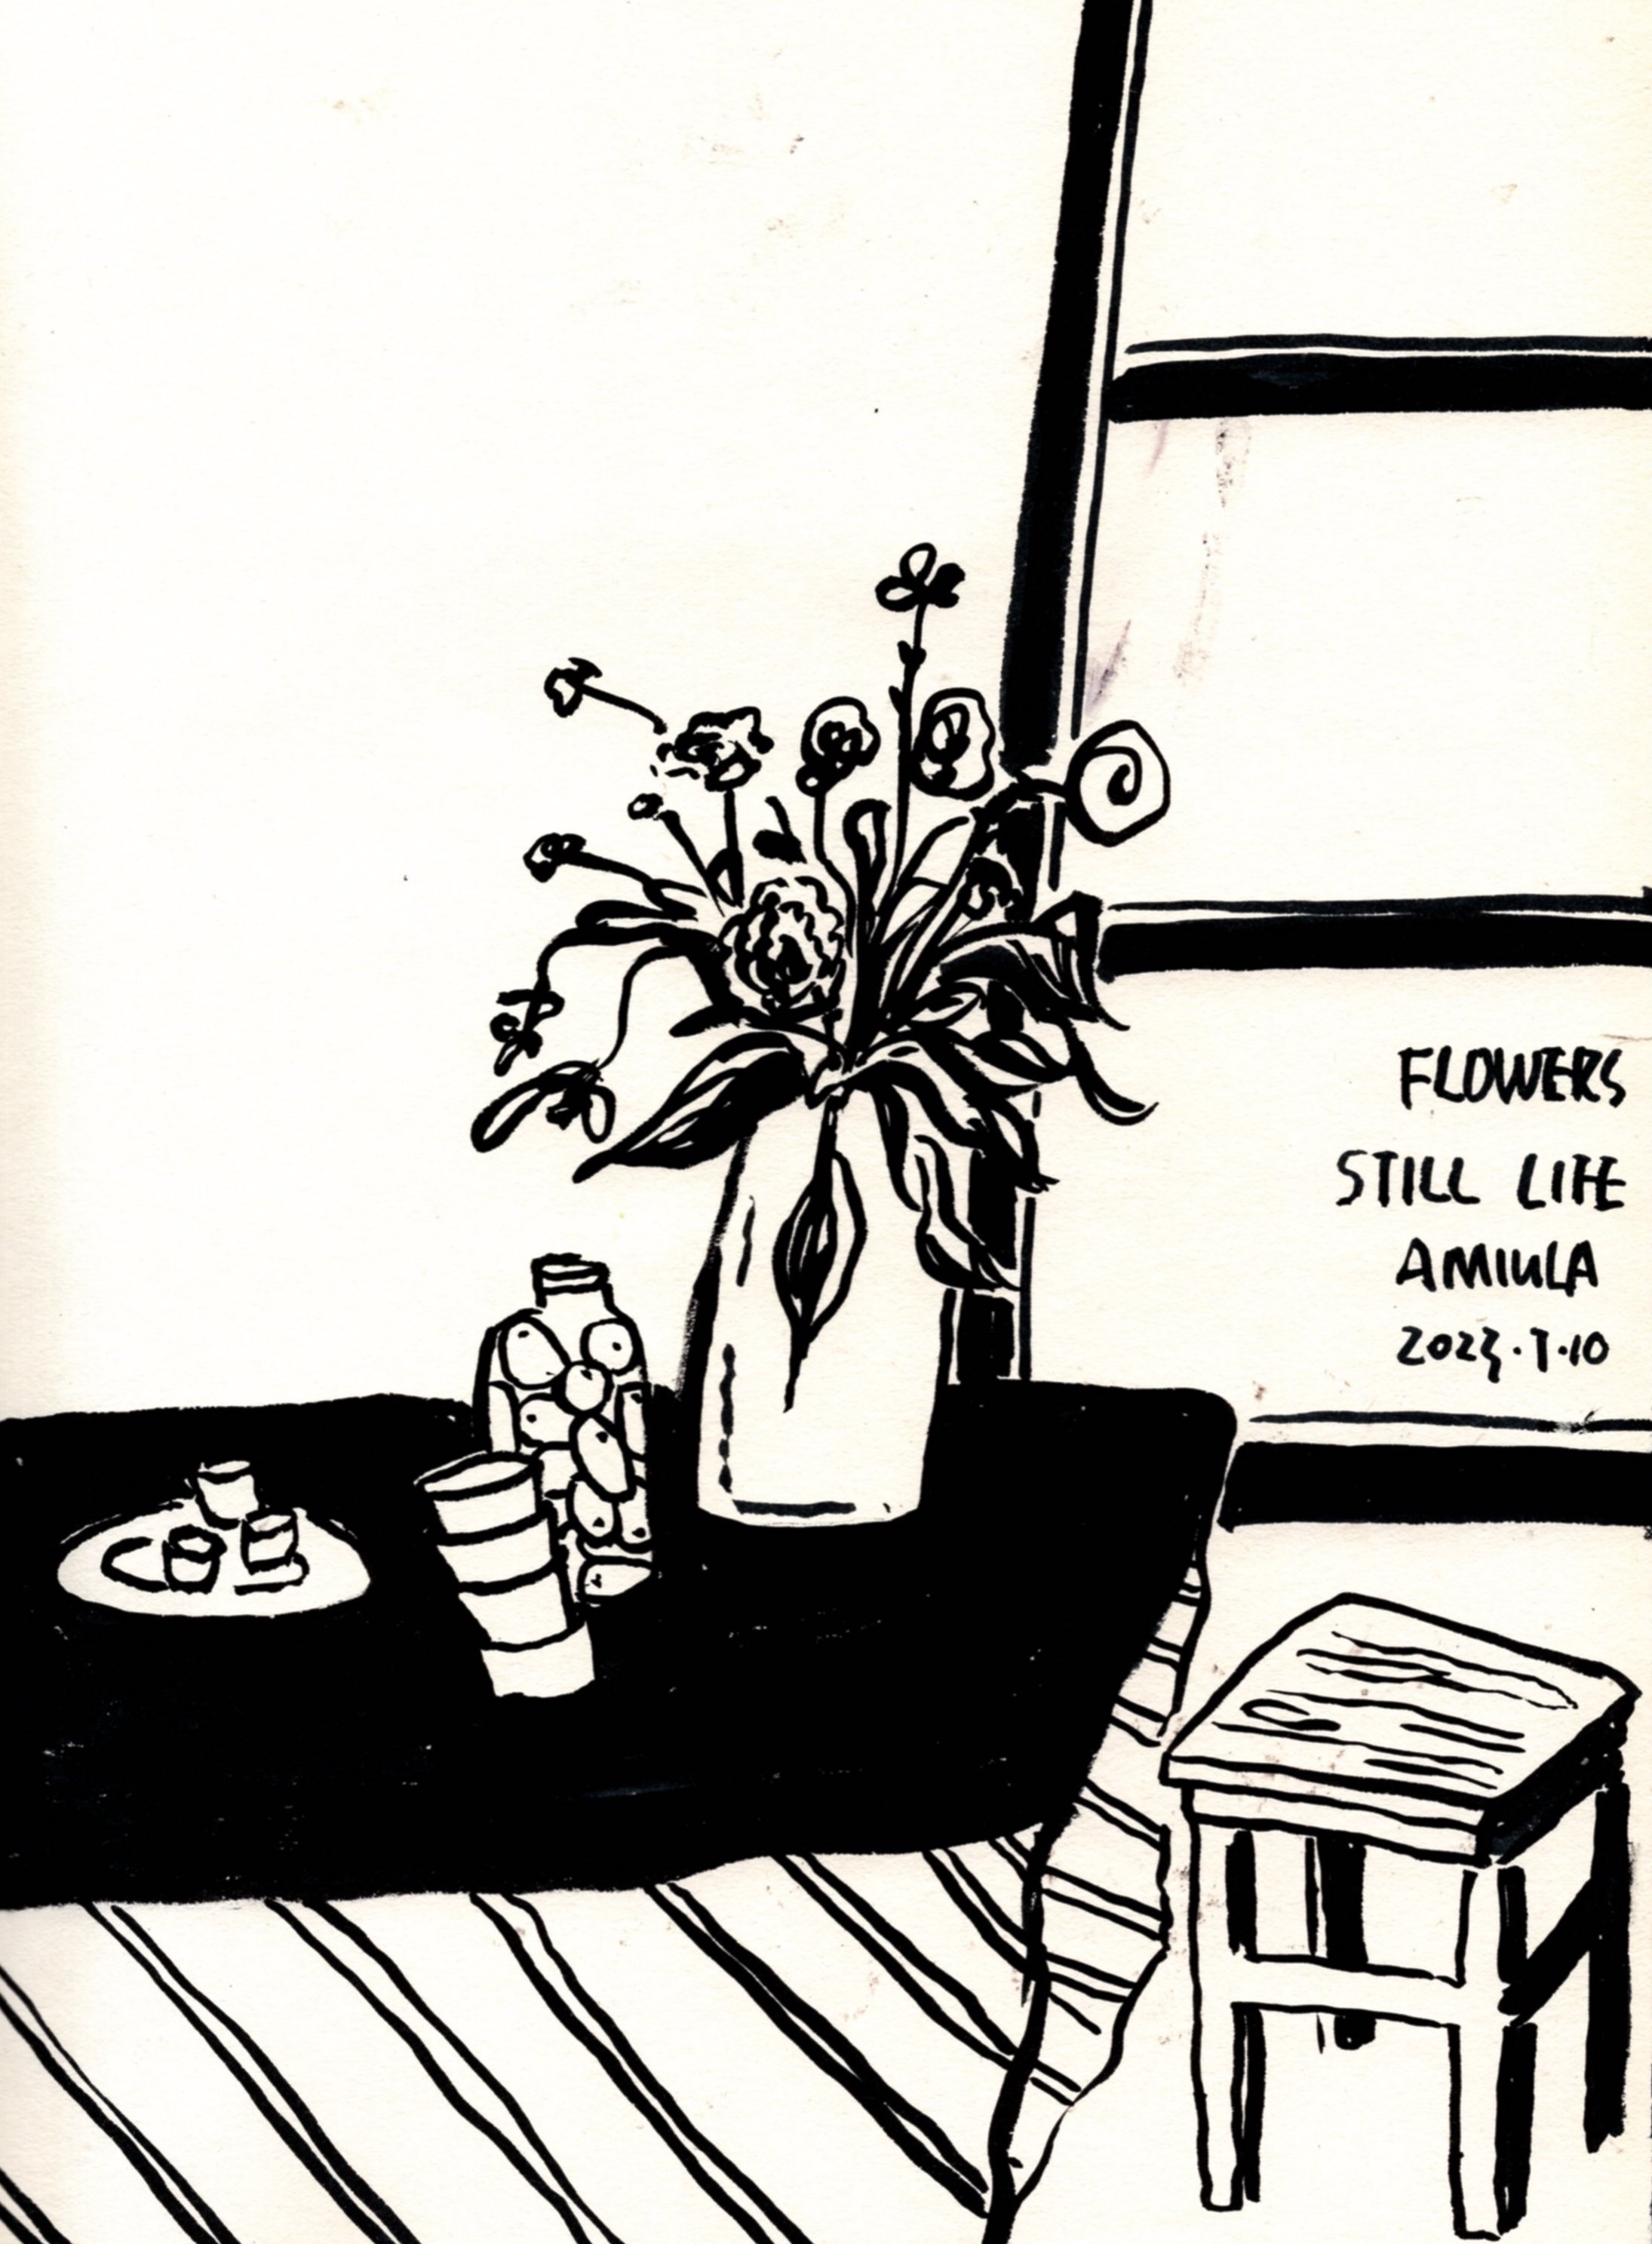 FLOWERS
STILL LIFE
AMIULA
2023.7.10